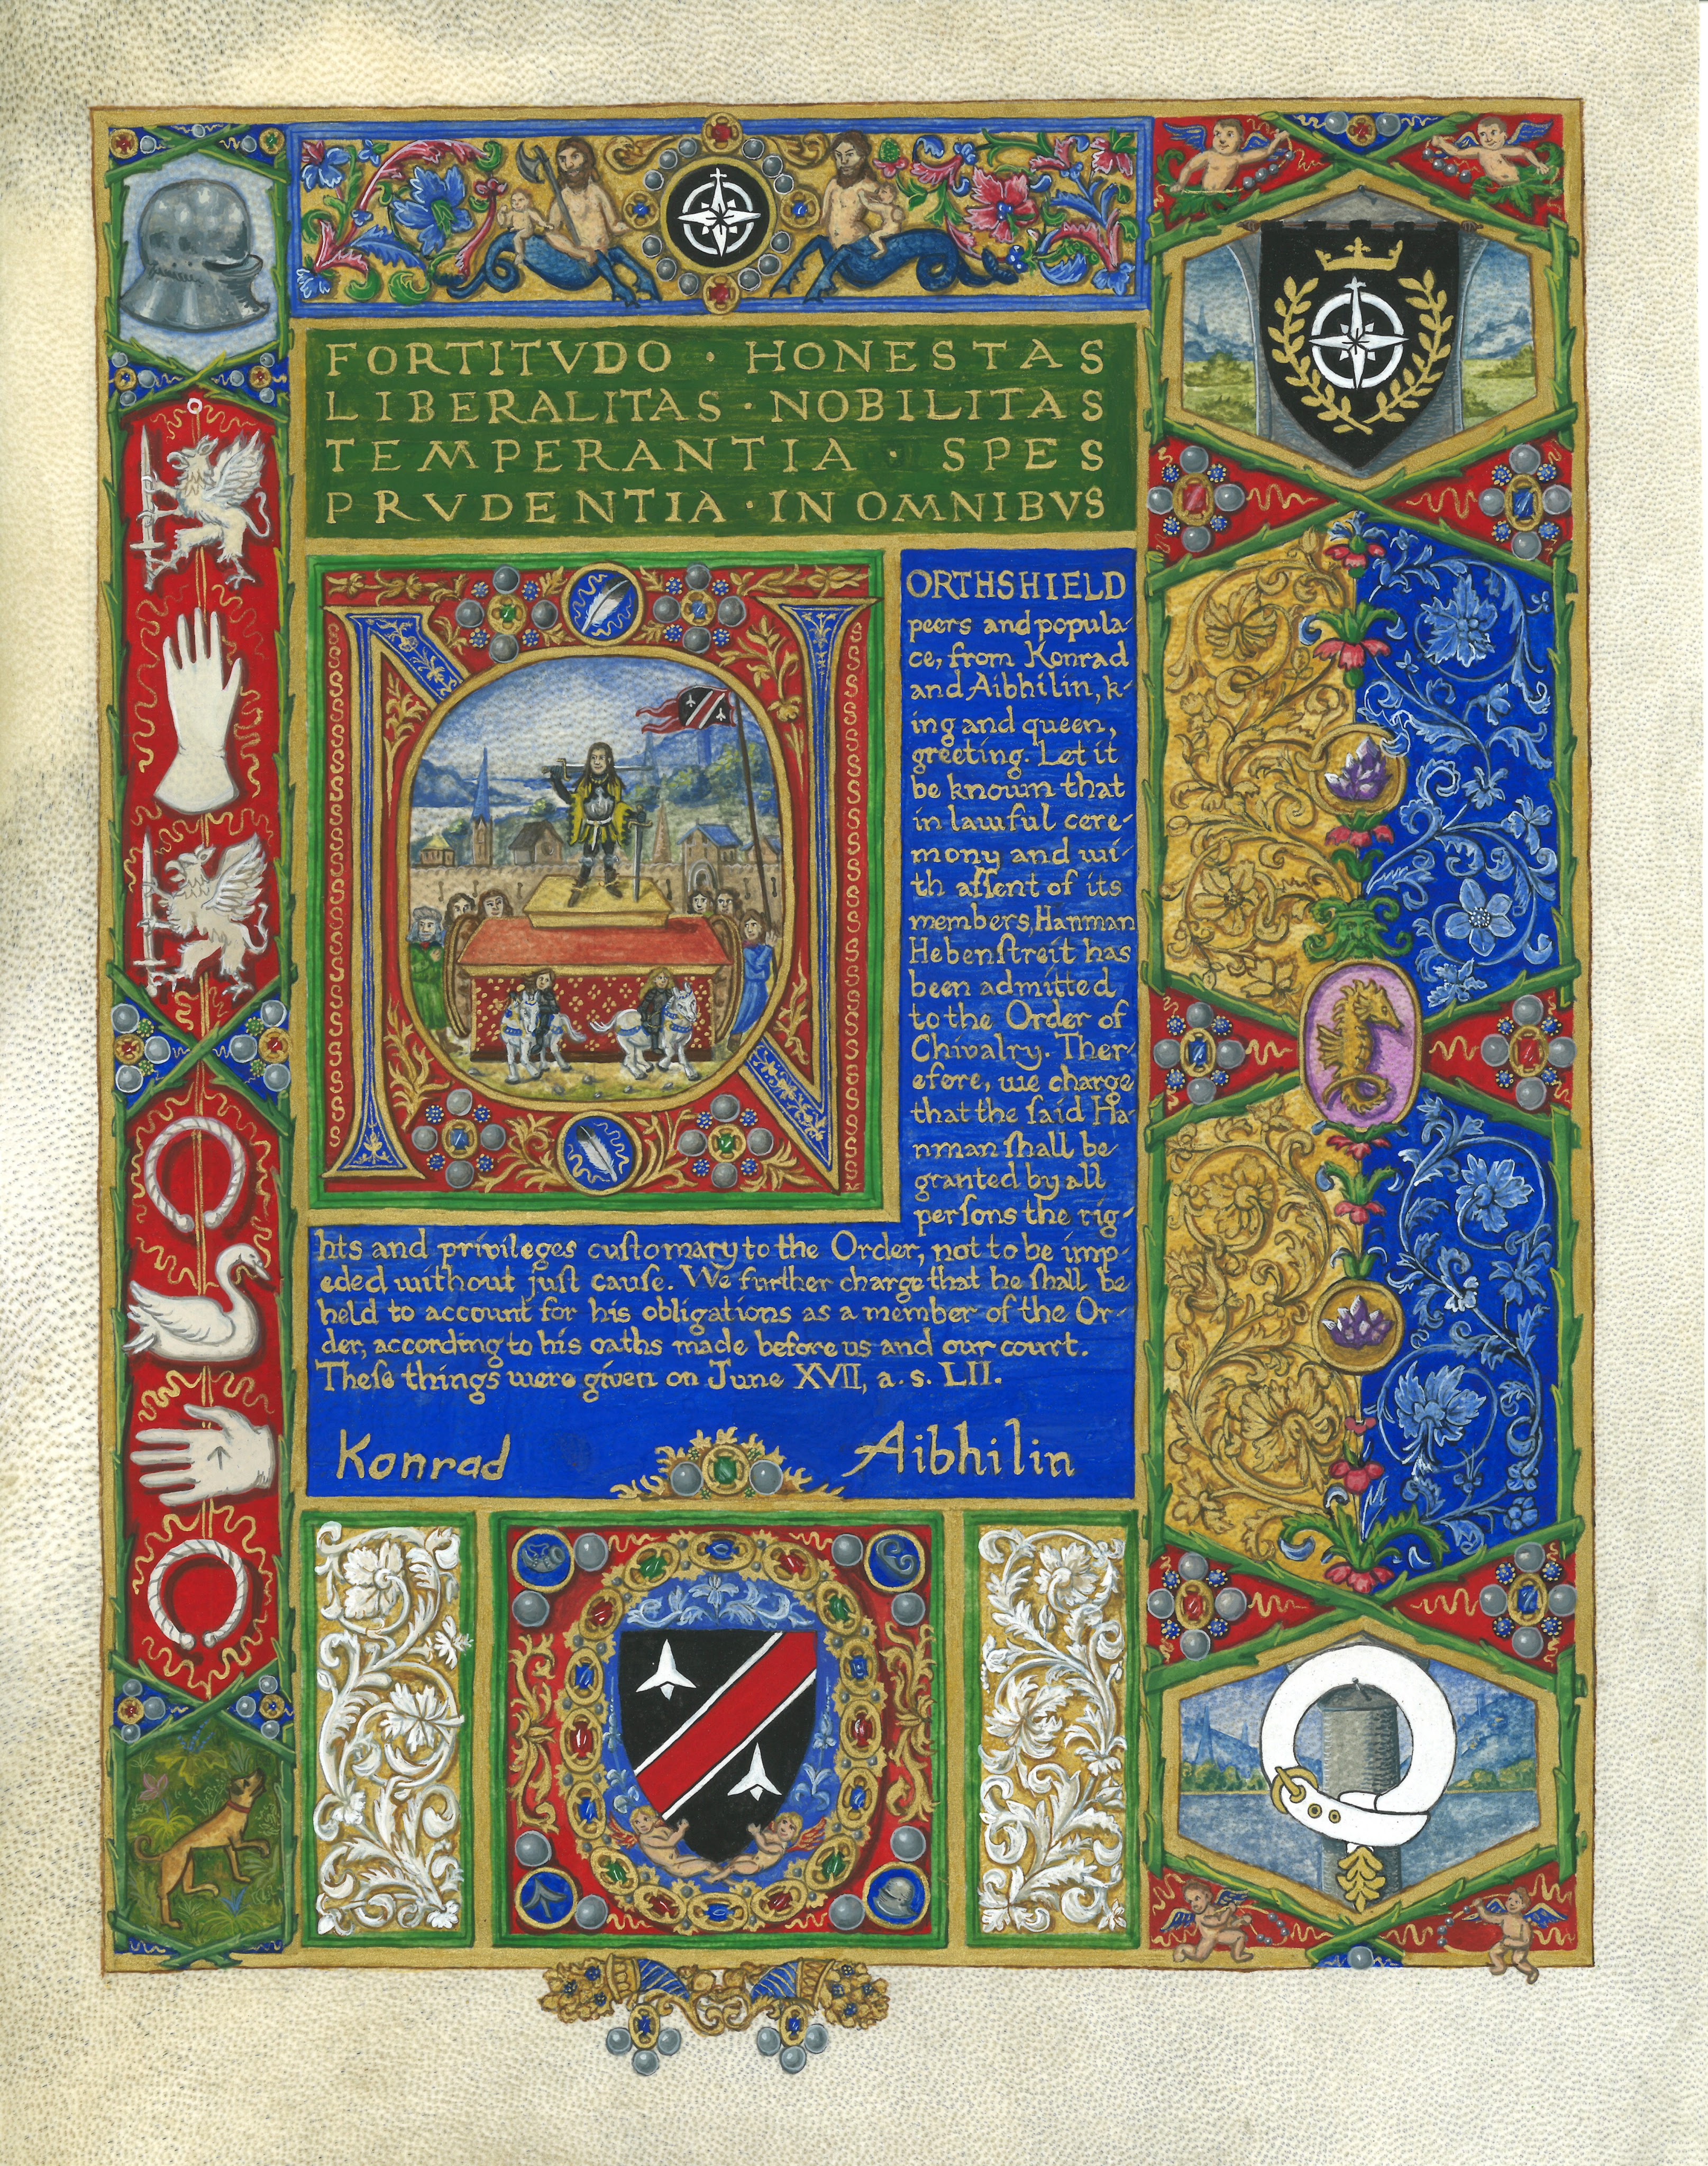 FORTITVDO · HONESTAS
LIBERALITAS · NOBILITAS
TEMPERANTIA · SPES
PRVDENTIA · IN OMNIBVS
N
ORTHSHIELD
peers and popula-
ce, from Konrad
and Aibhilin, k-
ing and queen,
greeting. Let it
be known that
in lawful cere-
mony and wi-
th aſſent of its
members, Hanman
Hebenſtreit has
been admitted
to the Order of
Chivalry. Ther-
efore, we charge
that the ſaid Ha
nman ſhall be
granted by all
perſons the rig-
hts and privileges cuſtomary to the Order, not to be imp-
eded without juſt cauſe. We further charge that he ſhall be
held to account for his obligations as a member of the Or-
der, according to his oaths made before us and our court.
Theſe things were given on June XVII, a. s. LII.
Konrad Aibhilin